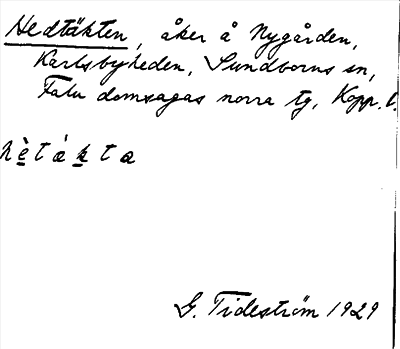 Hedtäkten, åker å Nygården,
Karlsbyheden, Sundborns sn,
Falu domsagas norra tg, Kopp. l.
hètákta
G. Tideström 1929